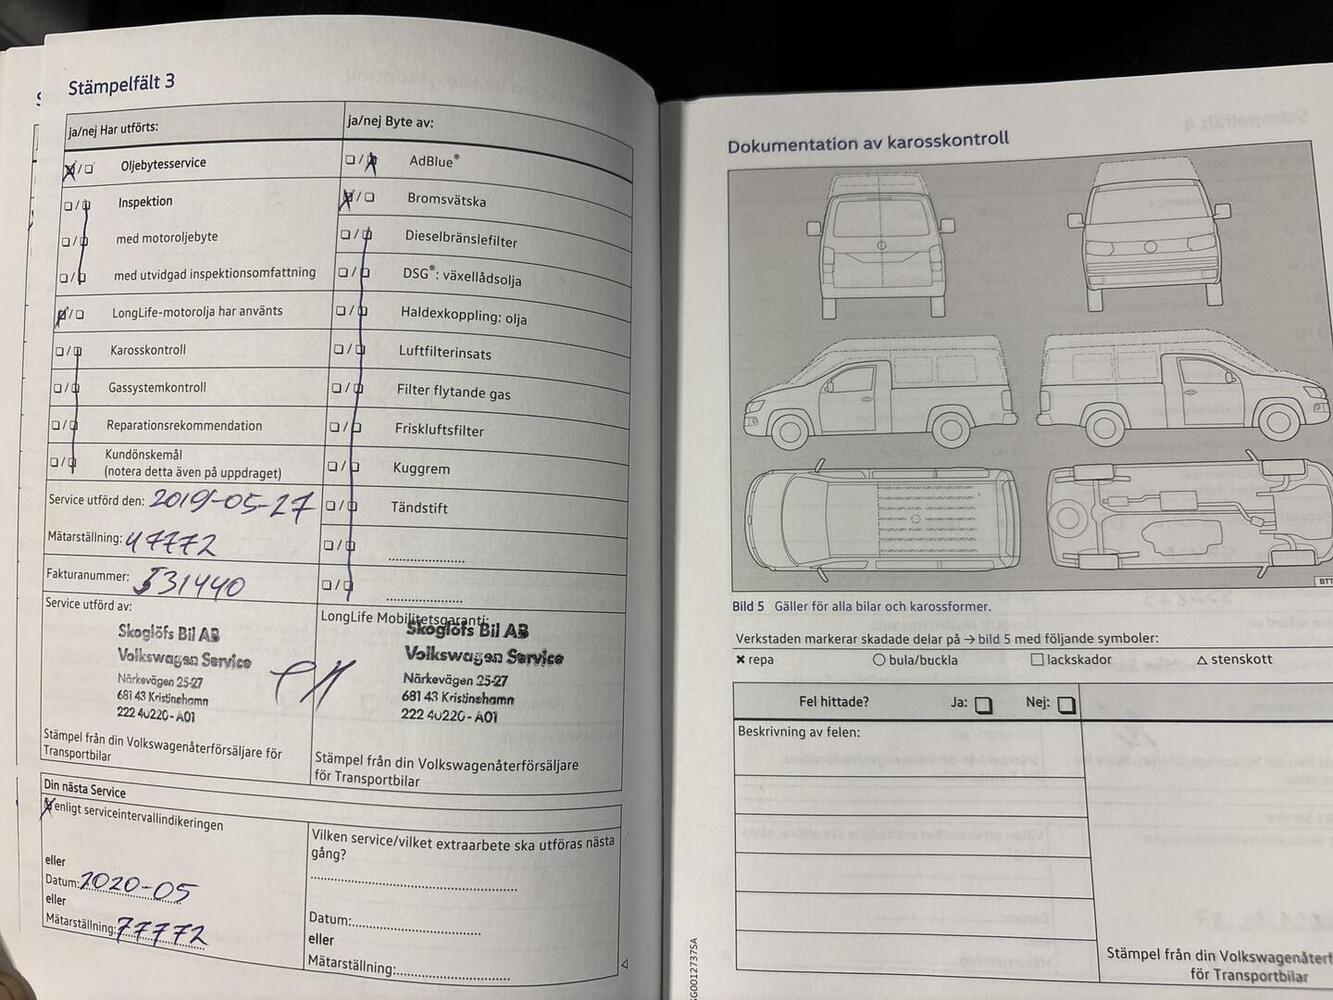 Stämpelfält 3
ja/nej Har utförts:
Oljebytesservice
Inspektion
med motoroljebyte
med utvidgad inspektionsomfattning
LongLife-motorolja har använts
Karosskontroll
Gassystemkontroll
Reparationsrekommendation
Kundönskemål
(notera detta även på uppdraget)
Service utförd den: 2019-05-27
Mätarställning: 47772
Fakturanummer: 531440
Service utförd av:
Skoglöfs Bil AB
Volkswagen Service
Närkevägen 25-27
681 43 Kristinehamn
222 40220 - A01
Stämpel från din Volkswagenåterförsäljare för
Transportbilar
ja/nej Byte av:
AdBlue®
Bromsvätska
Dieselbränslefilter
DSG®: växellådsolja
Haldexkoppling: olja
Luftfilterinsats
Filter flytande gas
Friskluftsfilter
Kuggrem
Tändstift
LongLife Mobilitetsgaranti:
Skoglöfs Bil AB
Volkswagen Service
Närkevägen 25-27
681 43 Kristinehamn
222 40220 - A01
Stämpel från din Volkswagenåterförsäljare
för Transportbilar
Din nästa Service
enligt serviceintervallindikeringen
eller
Datum: 2020-05
eller
Mätarställning: 77772
Vilken service/vilket extraarbete ska utföras nästa
gång?
Datum:
eller
Mätarställning:
Dokumentation av karosskontroll
BTT
Bild 5 Gäller för alla bilar och karossformer.
Verkstaden markerar skadade delar på → bild 5 med följande symboler:
× repa ○ bula/buckla □ lackskador △ stenskott
Fel hittade? Ja: Nej:
Beskrivning av felen:
Stämpel från din Volkswagenåterf
för Transportbilar